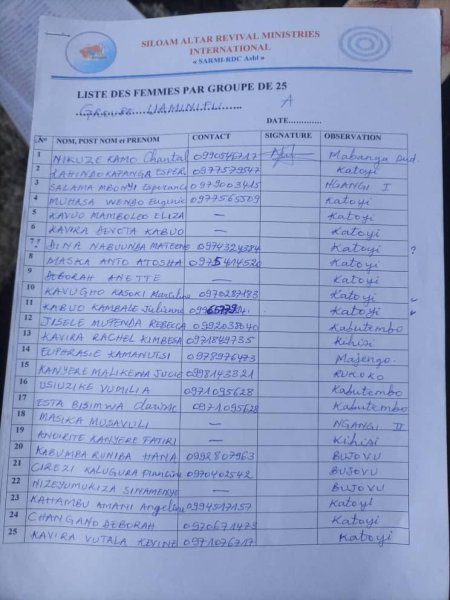 SILOAM ALTAR REVIVAL MINISTRIES
INTERNATIONAL
« SARMI-RDC Asbl »
LISTE DES FEMMES PAR GROUPE DE 25
GROUPE UAMINIFU A
DATE.............
N° NOM, POST NOM et PRENOM CONTACT SIGNATURE OBSERVATION
1 NIKUZE KAMO Chantal 0990546717 Mabanga Sud.
2 KAHINDO KAPANGA ESPER 0977579547 Katoyi
3 SALAMA MBONYI Esperance 0979003415 NGANGI I
4 MUHASA WENDO Eugenie 0977565509 Katoyi
5 KAVUO MAMBOLEO ELIZA — Katoyi
6 KAVIRA DEVOTA KABUO — Katoyi
7 ? DINA NABUUNDA MATEENE 0974324584 Katoyi ?
8 MASKA ANTO ATOSHA 0975414520 Katoyi
9 DEBORAH ANETTE — Katoyi
10 KAVUGHO KASOKI 0970287183 Katoyi
11 KABUO KAMBALE Julienne Katoyi
12 JISELE MUPENDA REBECA 0992038040 Kabutembo
13 KAVIRA RACHEL KIMBESA 0971849735 Kihisi
14 EUPHRASIE KAMANUTSI 0978976473 Majengo.
15 KANYERE MALIKEWA JUCIE 0998143321 RUKOKO
16 USIUZIKE VUMILIA 0971095628 Kabutembo
17 ESTA BISIMWA 0971095628 Kabutembo
18 MASIKA MUSAVULI — NGANGI II
19 ANUARITE KANYERE FATIRI — Kihisi
20 KABUMBA RUNIBA HANA 0992807963 BUJOVU
21 CIREZI KALUGURA Francine 0970402542 BUJOVU
22 NIZEYUMUKIZA — BUJOVU
23 KAHAMBU AMANI Angeline 0994517157 Katoyi
24 CHANGANO DEBORAH 0970671473 Katoyi
25 KAVIRA VUTALA KEVINE 0971076717 Katoyi